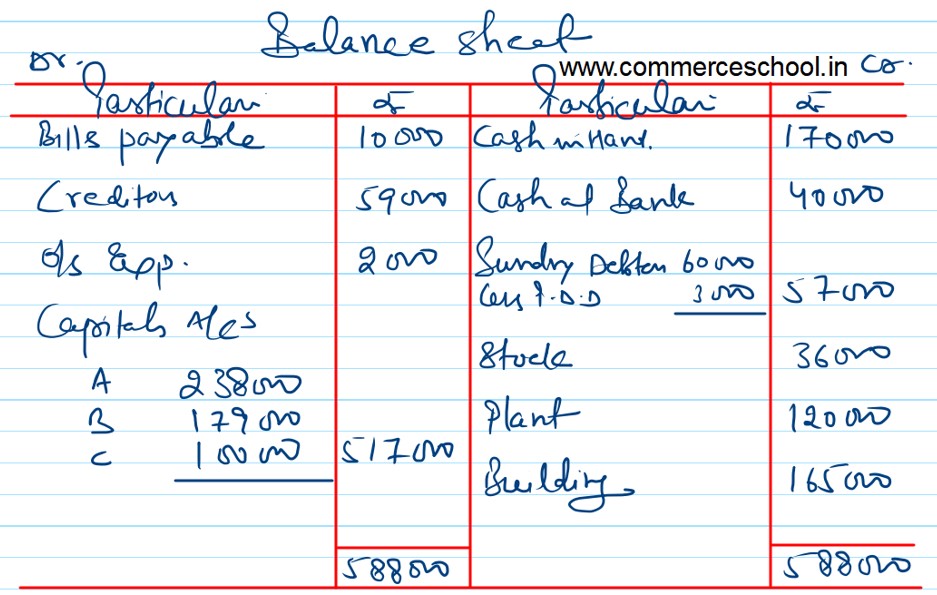 Balance sheet
Dr. www.commerceschool.in Cr.
Particulars ₹ Particulars ₹
Bills payable 10000 Cash in Hand. 170000
Creditors 59000 Cash at Bank 40000
o/s Exp. 2000 Sundry Debtors 60000
Less P.D.D 3000 57000
Capitals A/cs
Stock 36000
A 238000
B 179000 Plant 120000
C 100000 517000
Building 165000
588000 588000